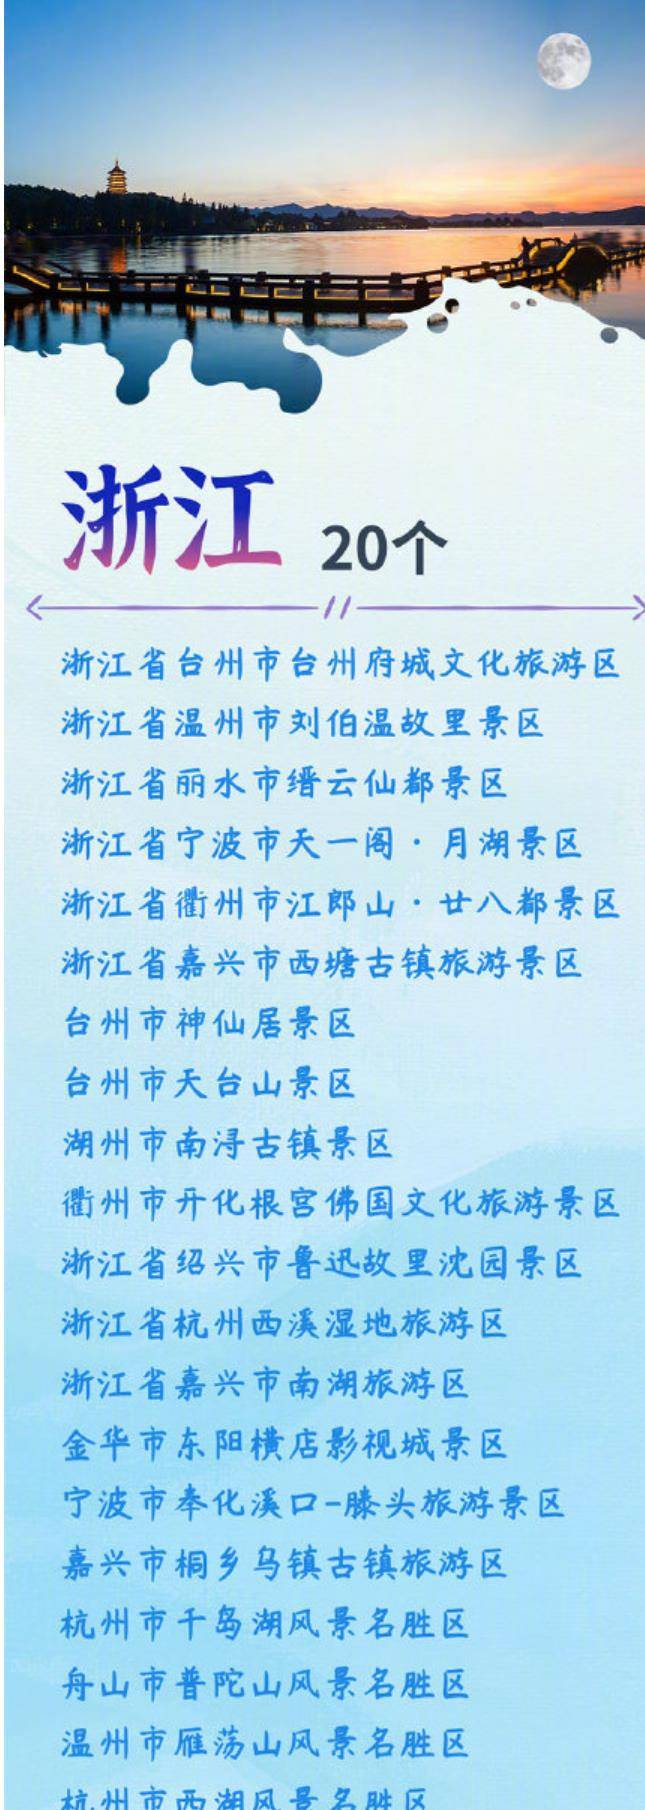 浙江 20个
浙江省台州市台州府城文化旅游区
浙江省温州市刘伯温故里景区
浙江省丽水市缙云仙都景区
浙江省宁波市天一阁·月湖景区
浙江省衢州市江郎山·廿八都景区
浙江省嘉兴市西塘古镇旅游景区
台州市神仙居景区
台州市天台山景区
湖州市南浔古镇景区
衢州市开化根宫佛国文化旅游景区
浙江省绍兴市鲁迅故里沈园景区
浙江省杭州西溪湿地旅游区
浙江省嘉兴市南湖旅游区
金华市东阳横店影视城景区
宁波市奉化溪口-滕头旅游景区
嘉兴市桐乡乌镇古镇旅游区
杭州市千岛湖风景名胜区
舟山市普陀山风景名胜区
温州市雁荡山风景名胜区
杭州市西湖风景名胜区